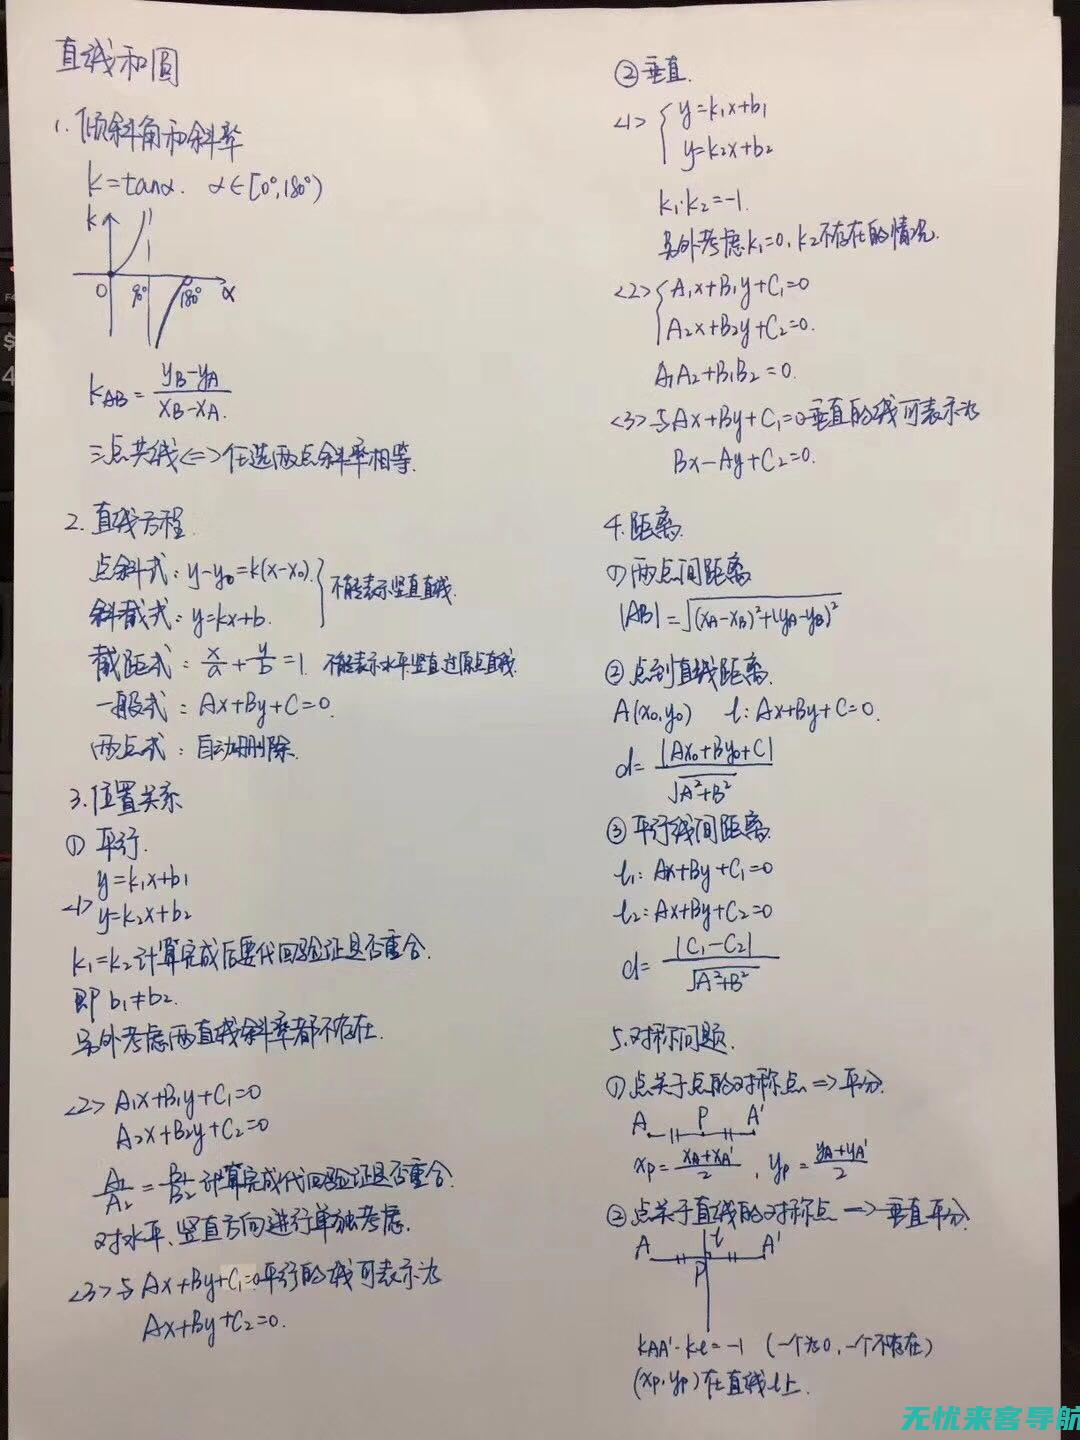 直线和圆
1. 倾斜角和斜率
k=tanα. α∈[0°,180°)
k
0 90° 180° α
k_AB = (y_B-y_A)/(x_B-x_A).
三点共线<=>任选两点斜率相等.
2. 直线方程
点斜式: y-y₀=k(x-x₀).
斜截式: y=kx+b.
不能表示竖直直线.
截距式: x/a + y/b = 1. 不能表示水平竖直过原点直线.
一般式: Ax+By+C=0.
两点式: 自动删除.
3. 位置关系
① 平行.
<1> y=k₁x+b₁
y=k₂x+b₂
k₁=k₂计算完成后要代回验证是否重合.
即 b₁≠b₂.
另外考虑两直线斜率都不存在.
<2> A₁x+B₁y+C₁=0
A₂x+B₂y+C₂=0
A₁/A₂ = B₁/B₂ 计算完成代回验证是否重合.
对水平、竖直方向进行单独考虑.
<3> 与Ax+By+C₁=0平行的线可表示为
Ax+By+C₂=0.
② 垂直.
<1> { y=k₁x+b₁
y=k₂x+b₂
k₁·k₂=-1.
另外考虑k₁=0, k₂不存在的情况.
<2> { A₁x+B₁y+C₁=0
A₂x+B₂y+C₂=0.
A₁A₂+B₁B₂=0.
<3> 与Ax+By+C₁=0垂直的线可表示为
Bx-Ay+C₂=0.
4. 距离.
① 两点间距离
|AB|=√((x_A-x_B)²+(y_A-y_B)²)
② 点到直线距离.
A(x₀,y₀) l: Ax+By+C=0.
d= |Ax₀+By₀+C|/√(A²+B²)
③ 平行线间距离.
l₁: Ax+By+C₁=0
l₂: Ax+By+C₂=0
d= |C₁-C₂|/√(A²+B²)
5. 对称问题.
① 点关于点的对称点=>平分.
A P A'
x_P=(x_A+x_A')/2, y_P=(y_A+y_A')/2
② 点关于直线的对称点=>垂直平分.
A l A'
P
k_AA'·k_l=-1 (一个为0,一个不存在)
(x_P,y_P)在直线l上.
无忧来客导航